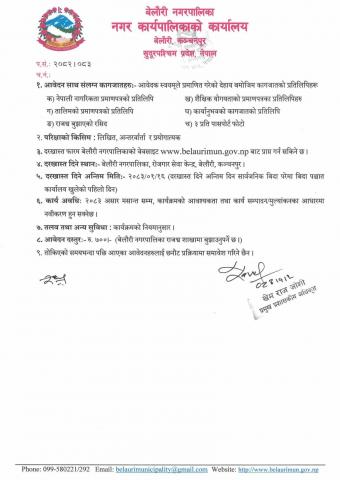 बेलौरी नगरपालिका
नगर कार्यपालिकाको कार्यालय
बेलौरी, कञ्चनपुर
सुदूरपश्चिम प्रदेश, नेपाल
प.सं.: २०८२।०८३
च.नं.:
१. आवेदन साथ संलग्न कागजातहरु:- आवेदक स्वयमूले प्रमाणित गरेको देहाय बमोजिम कागजातको प्रतिलिपिहरू
क) नेपाली नागरिकता प्रमाणपत्रको प्रतिलिपि
ख) शैक्षिक योग्यताको प्रमाणपत्रका प्रतिलिपि
ग) तालिमको प्रमाणपत्रको प्रतिलिपि
घ) कार्यानुभवको कागजातको प्रतिलिपि
ङ) राजश्व बुझाएको रसिद
च) ३ प्रति पासपोर्ट फोटो
२. परिक्षाको किसिम : लिखित, अन्तरर्वार्ता र प्रयोगात्मक
३. दरखास्त फाराम बेलौरी नगरपालिकाको वेबसाइट www.belaurimun.gov.np बाट प्राप्त गर्न सकिने छ।
४. दरखास्त दिने स्थान:- बेलौरी नगरपालिका, रोजगार सेवा केन्द्र, बेलौरी, कञ्चनपुर।
५. दरखास्त दिने अन्तिम मिति:- २०८३/०१/१६ (दरखास्त दिने अन्तिम दिन सार्वजनिक बिदा परेमा बिदा पश्चात कार्यालय खुलेको पहिलो दिन)
६. कार्य अवधि: २०८३ असार मसान्त सम्म, कार्यक्रमको आवश्यकता तथा कार्य सम्पादन/मुल्यांकनका आधारमा नवीकरण हुन सक्नेछ।
७. तलव तथा अन्य सुविधा : कार्यक्रमको नियमानुसार।
८. आवेदन दस्तुर:-रु. ७००/- (बेलौरी नगरपालिका राजश्व शाखामा बुझाउनुपर्ने छ।)
९. तोकिएको समयभन्दा पछि आएका आवेदनहरुलाई छनौट प्रक्रियामा समावेश गरिने छैन।
क्षेम राज जोशी
प्रमुख प्रशासकीय अधिकृत
Phone: 099-580221/292 Email: belaurimunicipality@gmail.com Website: http://www.belaurimun.gov.np